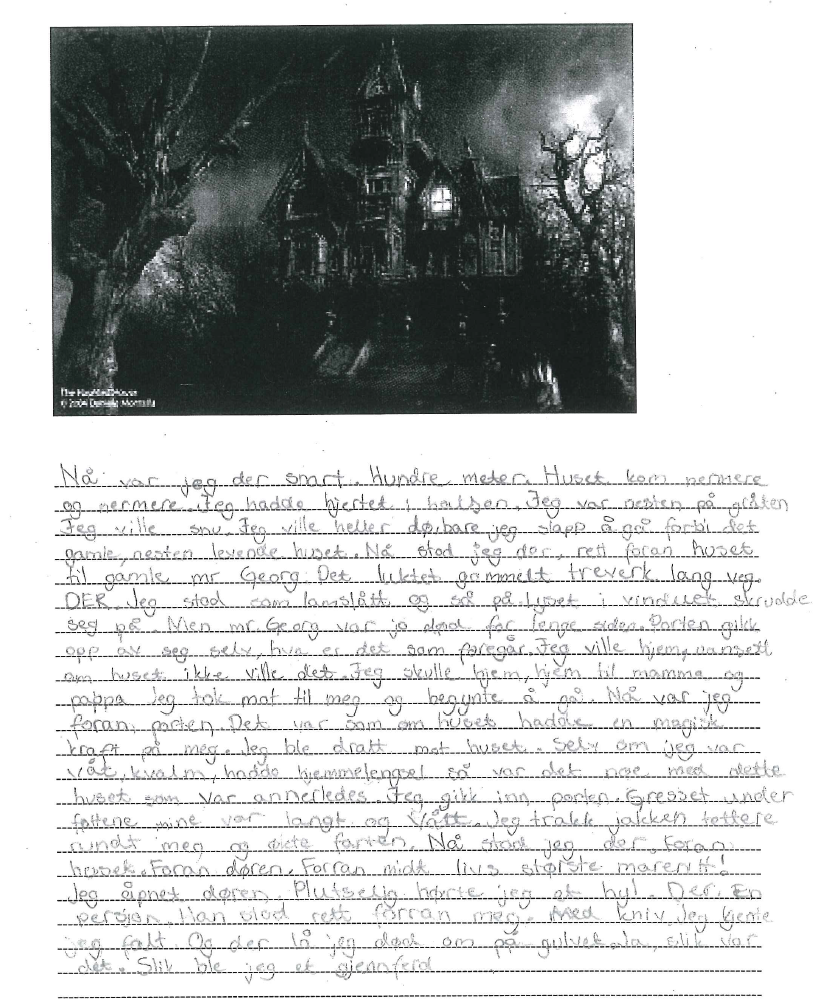 The Haunted House
© 2004 Daniele Montella
Nå var jeg der snart. Hundre meter. Huset kom nermere
og nermere. Jeg hadde hjertet i halsen. Jeg var nesten på gråten
Jeg ville snu. Jeg ville heller dø, bare jeg slapp å gå forbi det
gamle, nesten levende huset. Nå stod jeg der, rett foran huset
til gamle mr Georg. Det luktet gammelt treverk lang veg.
DER. Jeg stod som lamslått og så på. Lyset i vinduet skrudde
seg på. Men mr. Georg var jo død for lenge siden. Porten gikk
opp av seg selv, hva er det som foregår. Jeg ville hjem, uansett
om huset ikke ville det. Jeg skulle hjem, hjem til mamma og
pappa Jeg tok mot til meg og begynte å gå. Nå var jeg
foran porten. Det var som om huset hadde en magisk
kraft på meg. Jeg ble dratt mot huset. Selv om jeg var
våt, kvalm, hadde hjemmelengsel så var det noe med dette
huset som var annerledes. Jeg gikk inn porten. Gresset under
føttene mine var langt og Vått. Jeg trakk jakken tettere
rundt meg og økte farten. Nå stod jeg der, Foran
huset. Foran døren. Forran midt livs største maeritt!
Jeg åpnet døren. Plutselig hørte jeg et hyl. Der. En
person. Han stod rett forran meg. Med kniv. Jeg kjente
jeg falt Og der lå jeg død om på gulvet. Ja, slik var
det. Slik ble jeg et gjennferd